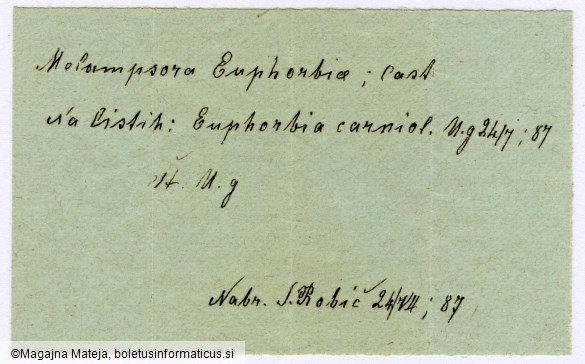 Melampsora Euphorbiæ; Cast
Na listih: Euphorbia carniol. U.g 24/7; 87
št. U.g
Nabr. S. Robič 24/VII; 87
©Magajna Mateja, boletusinformaticus.si